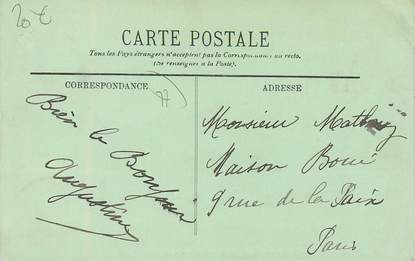 20 €
CARTE POSTALE
Tous les Pays étrangers n'acceptent pas la Correspondance au recto.
(Se renseigner à la Poste).
CORRESPONDANCE
77
Bien le Bonjour
Augustine
ADRESSE
Monsieur Mathiez
Maison Boué
9 rue de la Paix
Paris